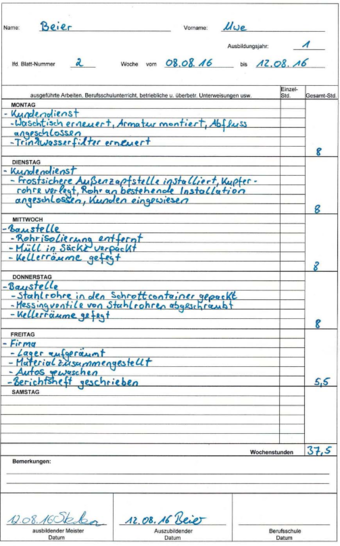 Name: Beier Vorname: Uwe
Ausbildungsjahr: 1
lfd. Blatt-Nummer 2 Woche vom 08.08.16 bis 12.08.16
ausgeführte Arbeiten, Berufsschulunterricht, betriebliche u. überbetr. Unterweisungen usw. Einzel-Std. Gesamt-Std.
MONTAG
- Kundendienst
- Waschtisch erneuert, Armatur montiert, Abfluss
angeschlossen
- Trinkwasserfilter erneuert 8
DIENSTAG
- Kundendienst
- Frostsichere Außenzapfstelle installiert, Kupfer-
rohre verlegt, Rohr an bestehende Installation
angeschlossen, Kunden eingewiesen 8
MITTWOCH
- Baustelle
- Rohrisolierung entfernt
- Müll in Säcke verpackt
- Kellerräume gefegt 8
DONNERSTAG
- Baustelle
- Stahlrohre in den Schrottcontainer gepackt
- Messingventile von Stahlrohren abgeschraubt
- Kellerräume gefegt 8
FREITAG
- Firma
- Lager aufgeräumt
- Material zusammengestellt
- Autos gewaschen
- Berichtsheft geschrieben 5,5
SAMSTAG
Wochenstunden 37,5
Bemerkungen:
12.08.16 12.08.16 Beier
ausbildender Meister Auszubildender Berufsschule
Datum Datum Datum